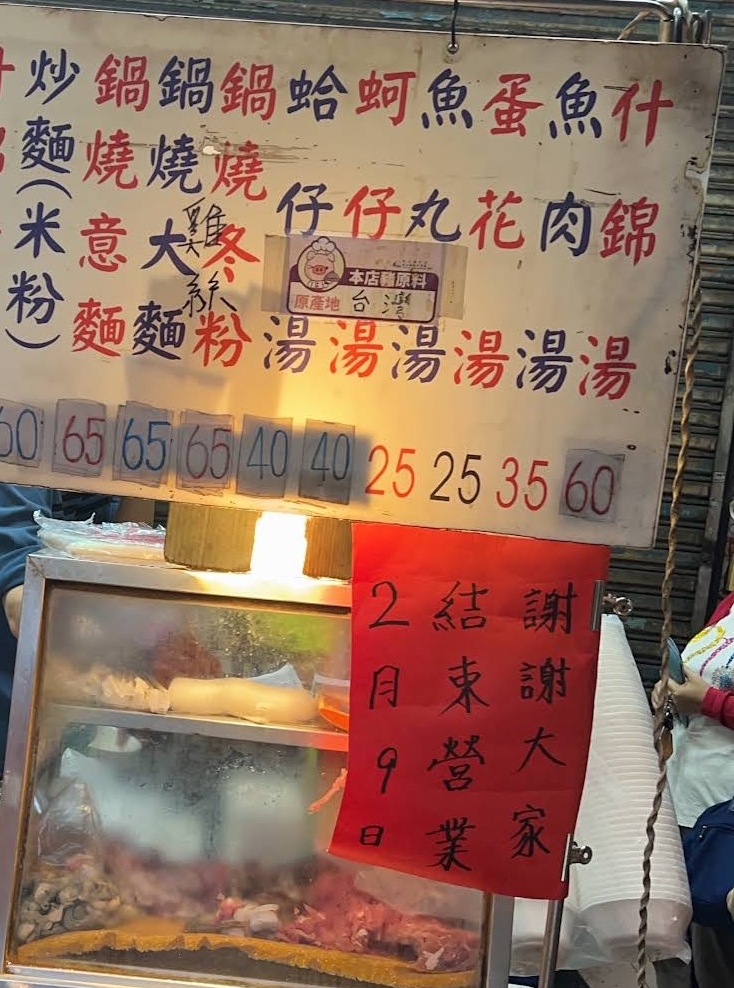 什錦湯 60
魚肉湯 35
蛋花湯 25
魚丸湯 25
蚵仔湯 40
蛤仔湯 40
鍋燒冬粉 65
雞絲
鍋燒大麵 65
鍋燒意麵 65
炒麵(米粉) 60
本店豬原料
原產地 台灣
謝謝大家
結東營業
2月9日